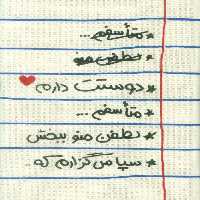 * متأسفم...
* لطفن منو
* دوستت دارم
* متأسفم...
* لطفن منو ببخش
* سپاس گزارم که